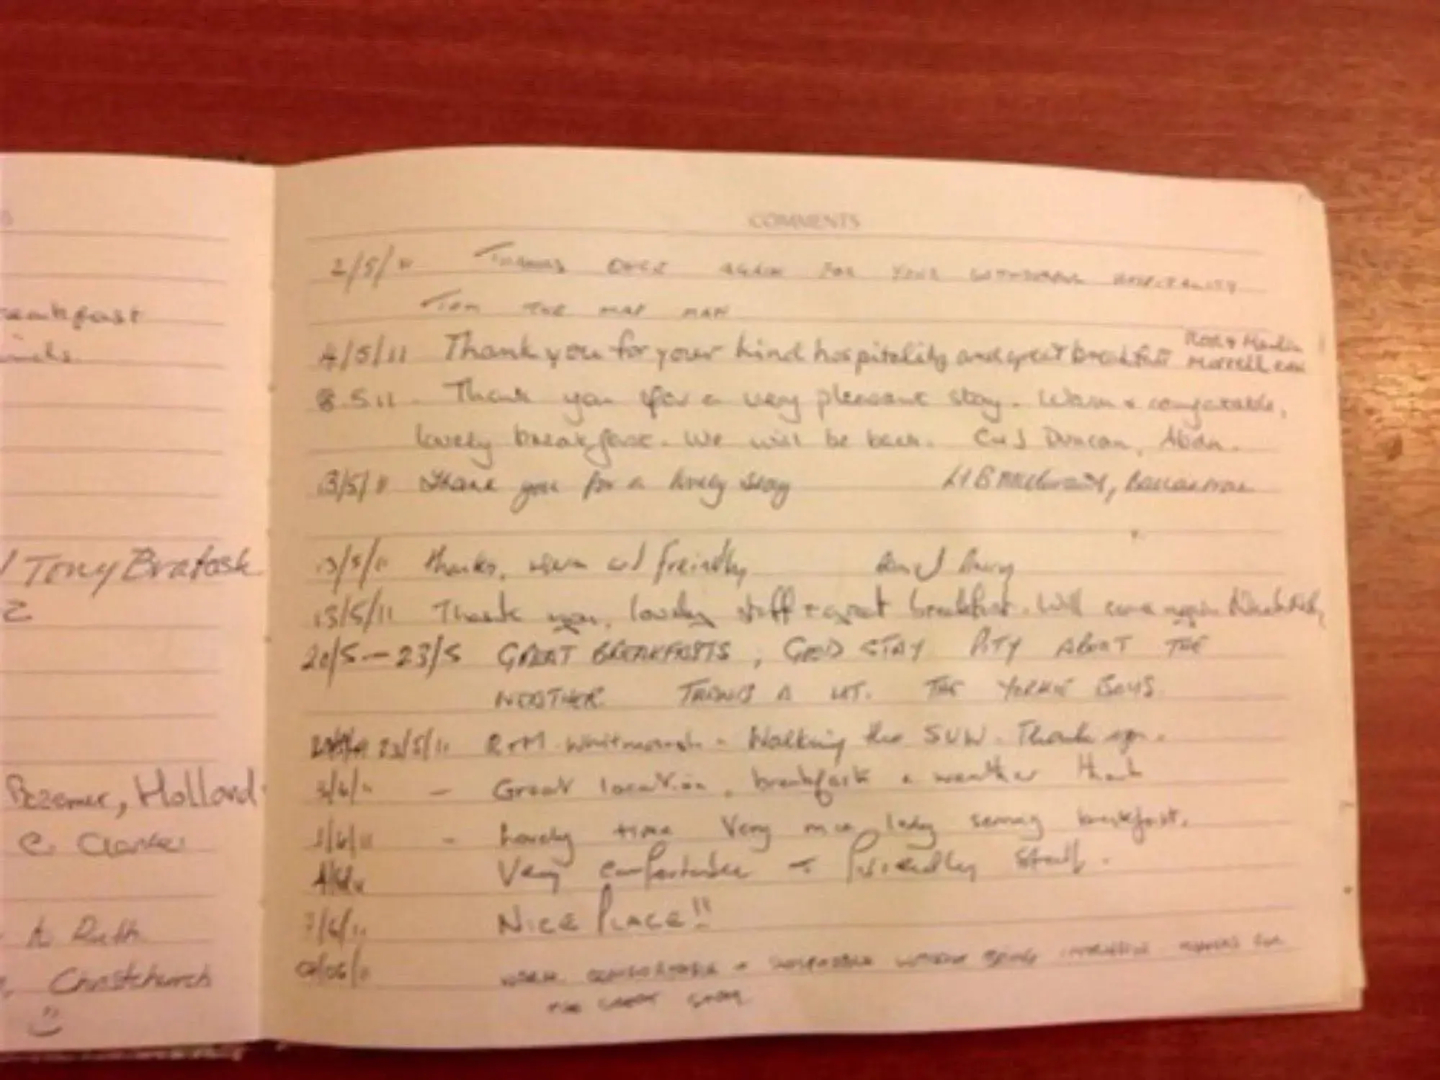 eakfast
Tony Bratosh
2
Bezemer, Holland
C. Clarke
& Ruth
Christchurch
COMMENTS
2/5/11 Thanks once again for your wonderful hospitality
Tom the map man
4/5/11 Thank you for your kind hospitality and great breakfast
8.5.11. Thank you for a very pleasant stay. Warm & comfortable,
lovely breakfast. We will be back. C & J Duncan,
13/5/11 Thank you for a lovely stay
13/5/11 thanks, warm and freindly
15/5/11 Thank you, lovely staff & great breakfast. Will come again
20/5 – 23/5 GREAT BREAKFASTS, GOOD STAY PITY ABOUT THE
WEATHER THANKS A LOT. THE YORKIE BOYS.
23/5/11 R & M Whitmarsh - Walking the SUW. Thank you.
- Great location, breakfast & weather
1/6/11 - Lovely time Very nice lady serving breakfast.
Very comfortable & friendly staff.
7/6/11 NICE PLACE!!
WARM COMFORTABLE & WITHOUT BEING INTRUSIVE THANKS FOR
THE GREAT